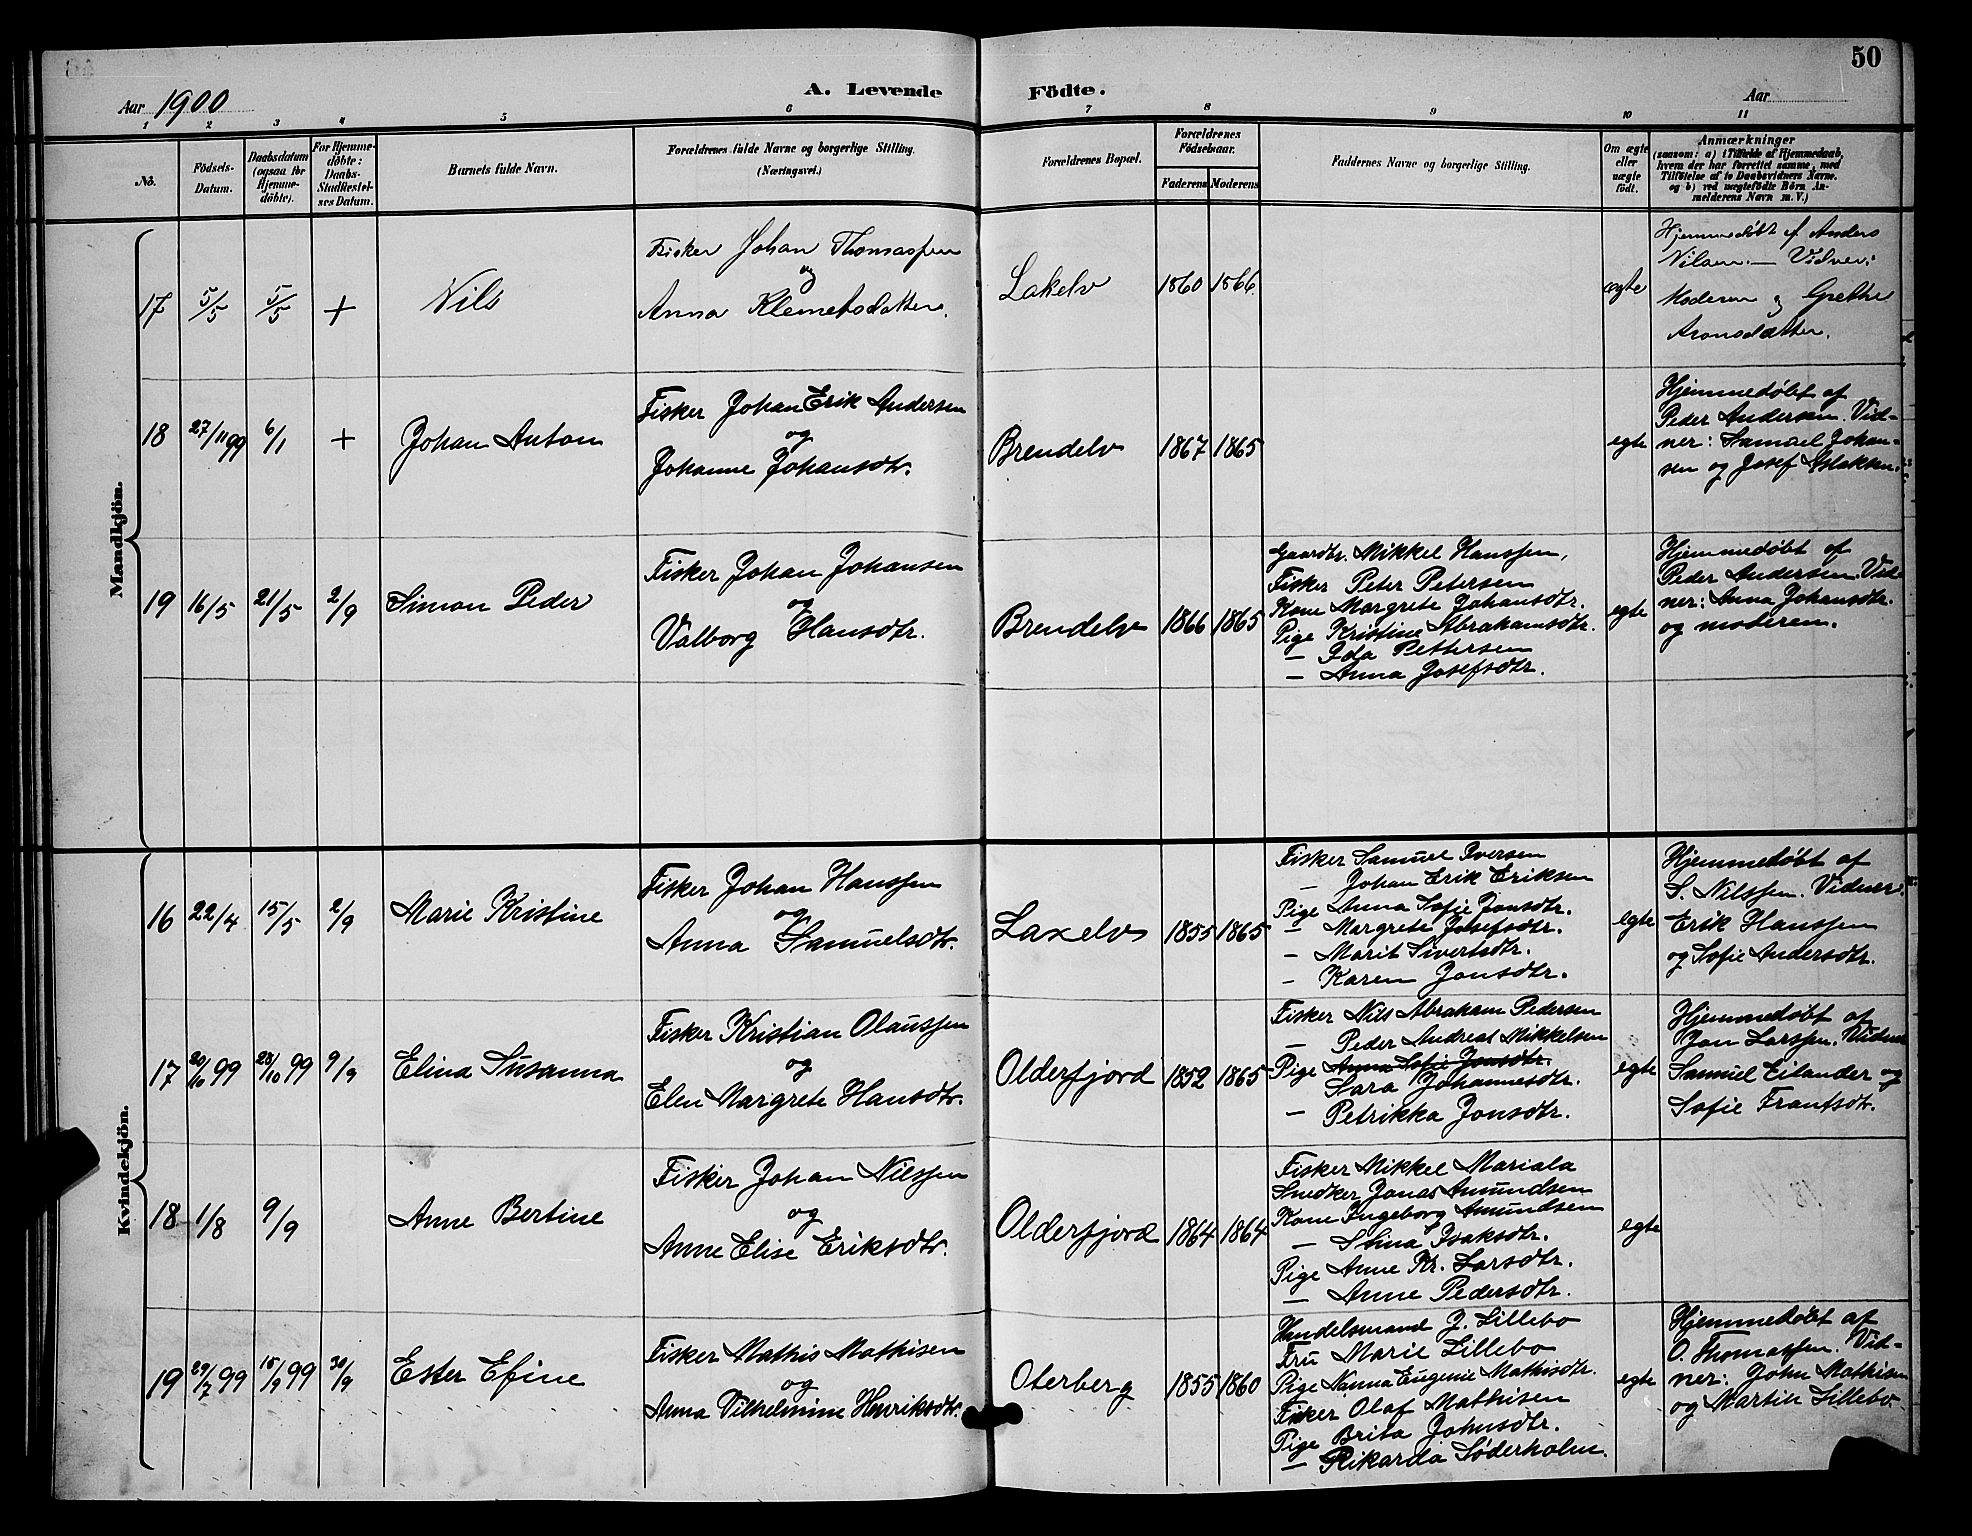 50
A. Levende Födte.
Aar 1900
Aar
1 2 3 4 5 6 7 8 9 10 11
No.
Födsels-
Datum.
Daabsdatum
(ogsaa for
Hjemme-
döbte).
For Hjemme-
döbte:
Daabs-
Stadfæstel-
ses Datum.
Barnets fulde Navn.
Forældrenes fulde Navne og borgerlige Stilling.
(Næringsvei.)
Forældrenes Bopæl.
Forældrenes
Födselsaar.
Faderens Moderens
Faddernes Navne og borgerlige Stilling.
Om ægte
eller
uægte
födt.
Anmærkninger
(saasom: a) i Tilfælde af Hjemmedaab,
hvem der har forrettet samme, med
Tilföielse af to Daabsvidners Navne.
og b) ved uægtefödte Börn An-
melderens Navn m. V.)
Mandkjön.
17 5/5 5/5 + Nils
Fisker Johan Thomassen
og
Anna Klemetsdatter.
Lakelv 1860 1866. ægte
Hjemmedøbt af Anders
Nilsen. — Vidner:
Moderen og Grethe
Aronsdatter.
18 27/11 99 6/1 + Johan Anton
Fisker Johan Erik Andersen
og
Johanne Johansdtr.
Brendelv 1867 1865 egte
Hjemmedøbt af
Peder Andersen. Vid-
ner: Samuel Johan-
sen og Josef Aslaksen.
19 16/5 21/5 2/9 Simon Peder
Fisker Johan Johansen
og
Valborg Hansdtr.
Brendelv 1866 1865
Gaardbr. Mikkel Hanssen,
Fisker Peter Petersen
Kone Margrete Johansdtr.
Pige Kristine Abrahamsdtr.
— Ida Pettersen
— Anna Josefsdtr.
egte
Hjemmedøbt af
Peder Andersen. Vid-
ner: Anna Johansdtr.
og moderen.
Kvindekjön.
16 22/4 15/5 2/9 Marie Kristine
Fisker Johan Hanssen
og
Anna Samuelsdtr.
Laxelv 1855 1865
Fisker Samuel Iversen
— Johan Erik Eriksen
Pige Anna Sofie Jonsdtr.
— Margrete Josefsdtr.
— Marit Sivertsdtr.
— Karen Jonsdtr.
egte
Hjemmedøbt af
S. Nilssen. Vidner
Erik Hanssen
og Sofie Andersdtr.
17 20/10 99 28/10 99 9/9 Elina Susanna
Fisker Kristian Olaussen
og
Elen Margrete Hansdtr.
Olderfjord 1852 1865
Fisker Nils Abraham Pedersen
— Peder Andreas Mikkelsen
Pige Anna Sofie Jonsdtr.
Sara Johannesdtr.
— Petrikka Jonsdtr.
egte
Hjemmedøbt af
Jon Larssen. Vidner
Samuel Eilander og
Sofie Frantsdtr.
18 1/8 9/9 Anne Bertine
Fisker Johan Nilssen
og
Anne Elise Eriksdtr.
Olderfjord 1864 1864
Fisker Mikkel Mariala
Snedker Jonas Amundsen
Kone Ingeborg Amundsen
— Stina Isaksdtr.
Pige Anne Kr. Larsdtr.
— Anne Pedersdtr.
egte
19 29/7 99 15/9 99 30/9 Ester Efine
Fisker Mathis Mathisen
og
Anna Vilhelmine Henriksdtr.
Oterberg 1855 1860
Handelsmand J. Lillebo
Fru Marie Lillebo
Pige Nanna Eugenie Mathisdtr.
Fisker Olaf Mathisen
Pige Brita Johnsdtr.
— Rikarda Søderholm.
egte
Hjemmedøbt af
O. Thomassen. Vid-
ner: John Mathisen
og Martin Lillebo.